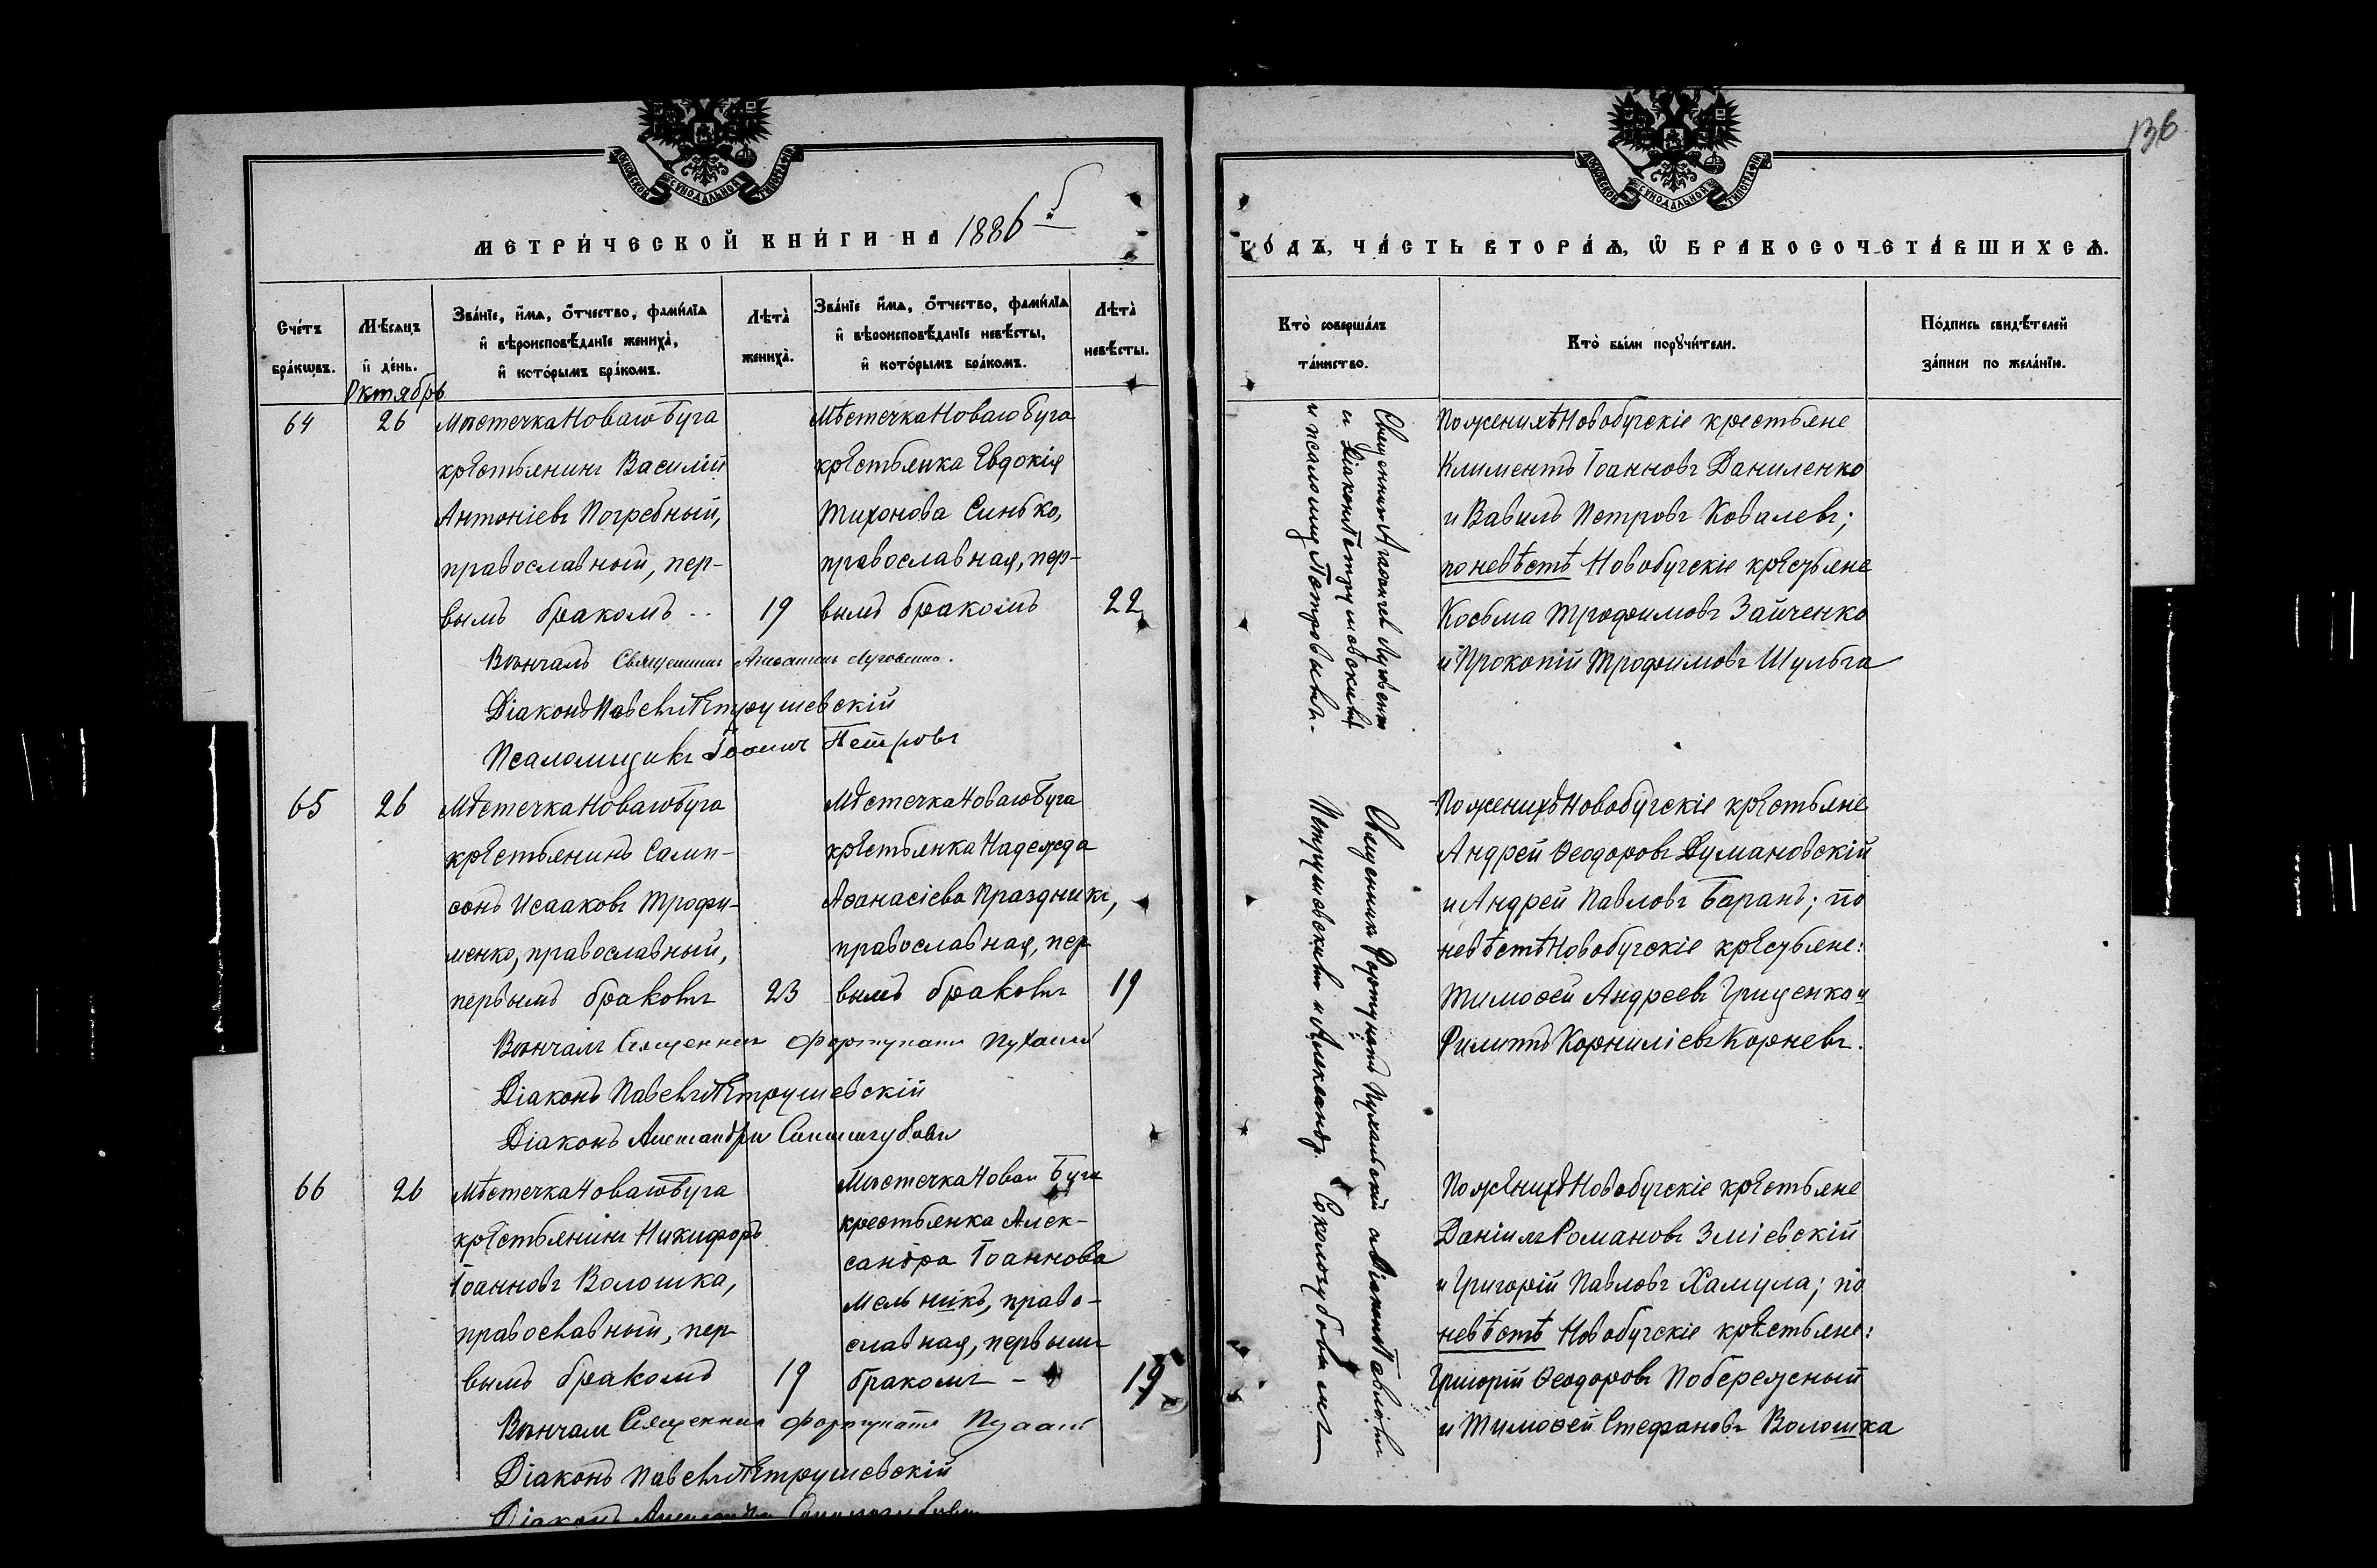 МОСКОВСКОЙ СѴНОДАЛЬНОЙ ТИПОГРАФІИ
МЕТРИ́ЧЕСКОЙ КНИ́ГИ НА 1886
Сче́тъ бра́кѡвъ.
Мѣ́сяцъ и҆ де́нь.
Зва́нїе, и҆́мѧ, ѻ҆́тчество, фами́лїѧ
и҆ вѣроисповѣ́данїе жениха̀,
и҆ кото́рымъ бра́комъ.
Лѣта̀ жениха̀.
Зва́нїе и҆́мѧ, ѻ҆́тчество, фами́лїѧ
и҆ вѣроисповѣ́данїе невѣ́сты,
и҆ кото́рымъ бра́комъ.
Лѣта̀ невѣ́сты.
Октябрь
64
26
Мѣстечка Новаго Буга
крестьянинъ Василій
Антоніевъ Погребный,
православный, пер-
вымъ бракомъ
19
Мѣстечка Новаго Буга
крестьянка Евдокія
Тихонова Синько,
православная, пер-
вымъ бракомъ
22
Вѣнчалъ Священникъ
Діаконъ Павелъ Петрушевскій
Псаломщикъ Іоаннъ Петровъ
65
26
Мѣстечка Новаго Буга
крестьянинъ Самп-
сонъ Исааковъ Трофи-
менко, православный,
первымъ бракомъ
23
Мѣстечка Новаго Буга
крестьянка Надежда
Аѳанасіева Праздникъ,
православная, пер-
вымъ бракомъ
19
Вѣнчалъ Священникъ Фортунатъ
Діаконъ Павелъ Петрушевскій
Діаконъ Александръ
66
26
Мѣстечка Новаго Буга
крестьянинъ Никифоръ
Іоанновъ Волошка,
православный, пер-
вымъ бракомъ
19
Мѣстечка Новаго Буга
крестьянка Алек-
сандра Іоаннова
Мельникъ, право-
славная, первымъ
бракомъ -
19
Вѣнчалъ Священникъ Фортунатъ
Діаконъ Павелъ Петрушевскій
Діаконъ Александръ
136
МОСКОВСКОЙ СѴНОДАЛЬНОЙ ТИПОГРАФІИ
ГО́ДЪ, ЧА́СТЬ ВТОРА́Ѧ, Ѡ҆ БРАКОСОЧЕТА́ВШИХСѦ.
Кто̀ соверша́лъ
та́инство.
Кто̀ бы́ли порꙋчи́тели.
По́дпись свидѣ́телей
за́писи по жела́нїю.
Священник
и Діаконъ Петрушевскимъ
и псаломщ. Петровымъ.
По женихѣ Новобугскіе крестьяне
Климентъ Іоанновъ Даниленко
и Вавилъ Петровъ Ковалевъ;
по невѣстѣ Новобугскіе крестьяне
Косьма Трофимовъ Зайченко
и Прокопій Трофимовъ Шульга
Священник Фортунатъ Пухальскій
Петрушевскимъ и Александр.
По женихѣ Новобугскіе крестьяне
Андрей Ѳеодоровъ Думановскій
и Андрей Павловъ Баранъ; по
невѣстѣ Новобугскіе крестьяне:
Тимоѳей Андреевъ Грищенко и
Филиппъ Корниліевъ Корневъ.
По женихѣ Новобугскіе крестьяне
Даніилъ Романовъ Зміевскій
и Григорій Павловъ Хамула; по
невѣстѣ Новобугскіе крестьяне:
Григорій Ѳеодоровъ Побережный
и Тимоѳей Стефановъ Волошка